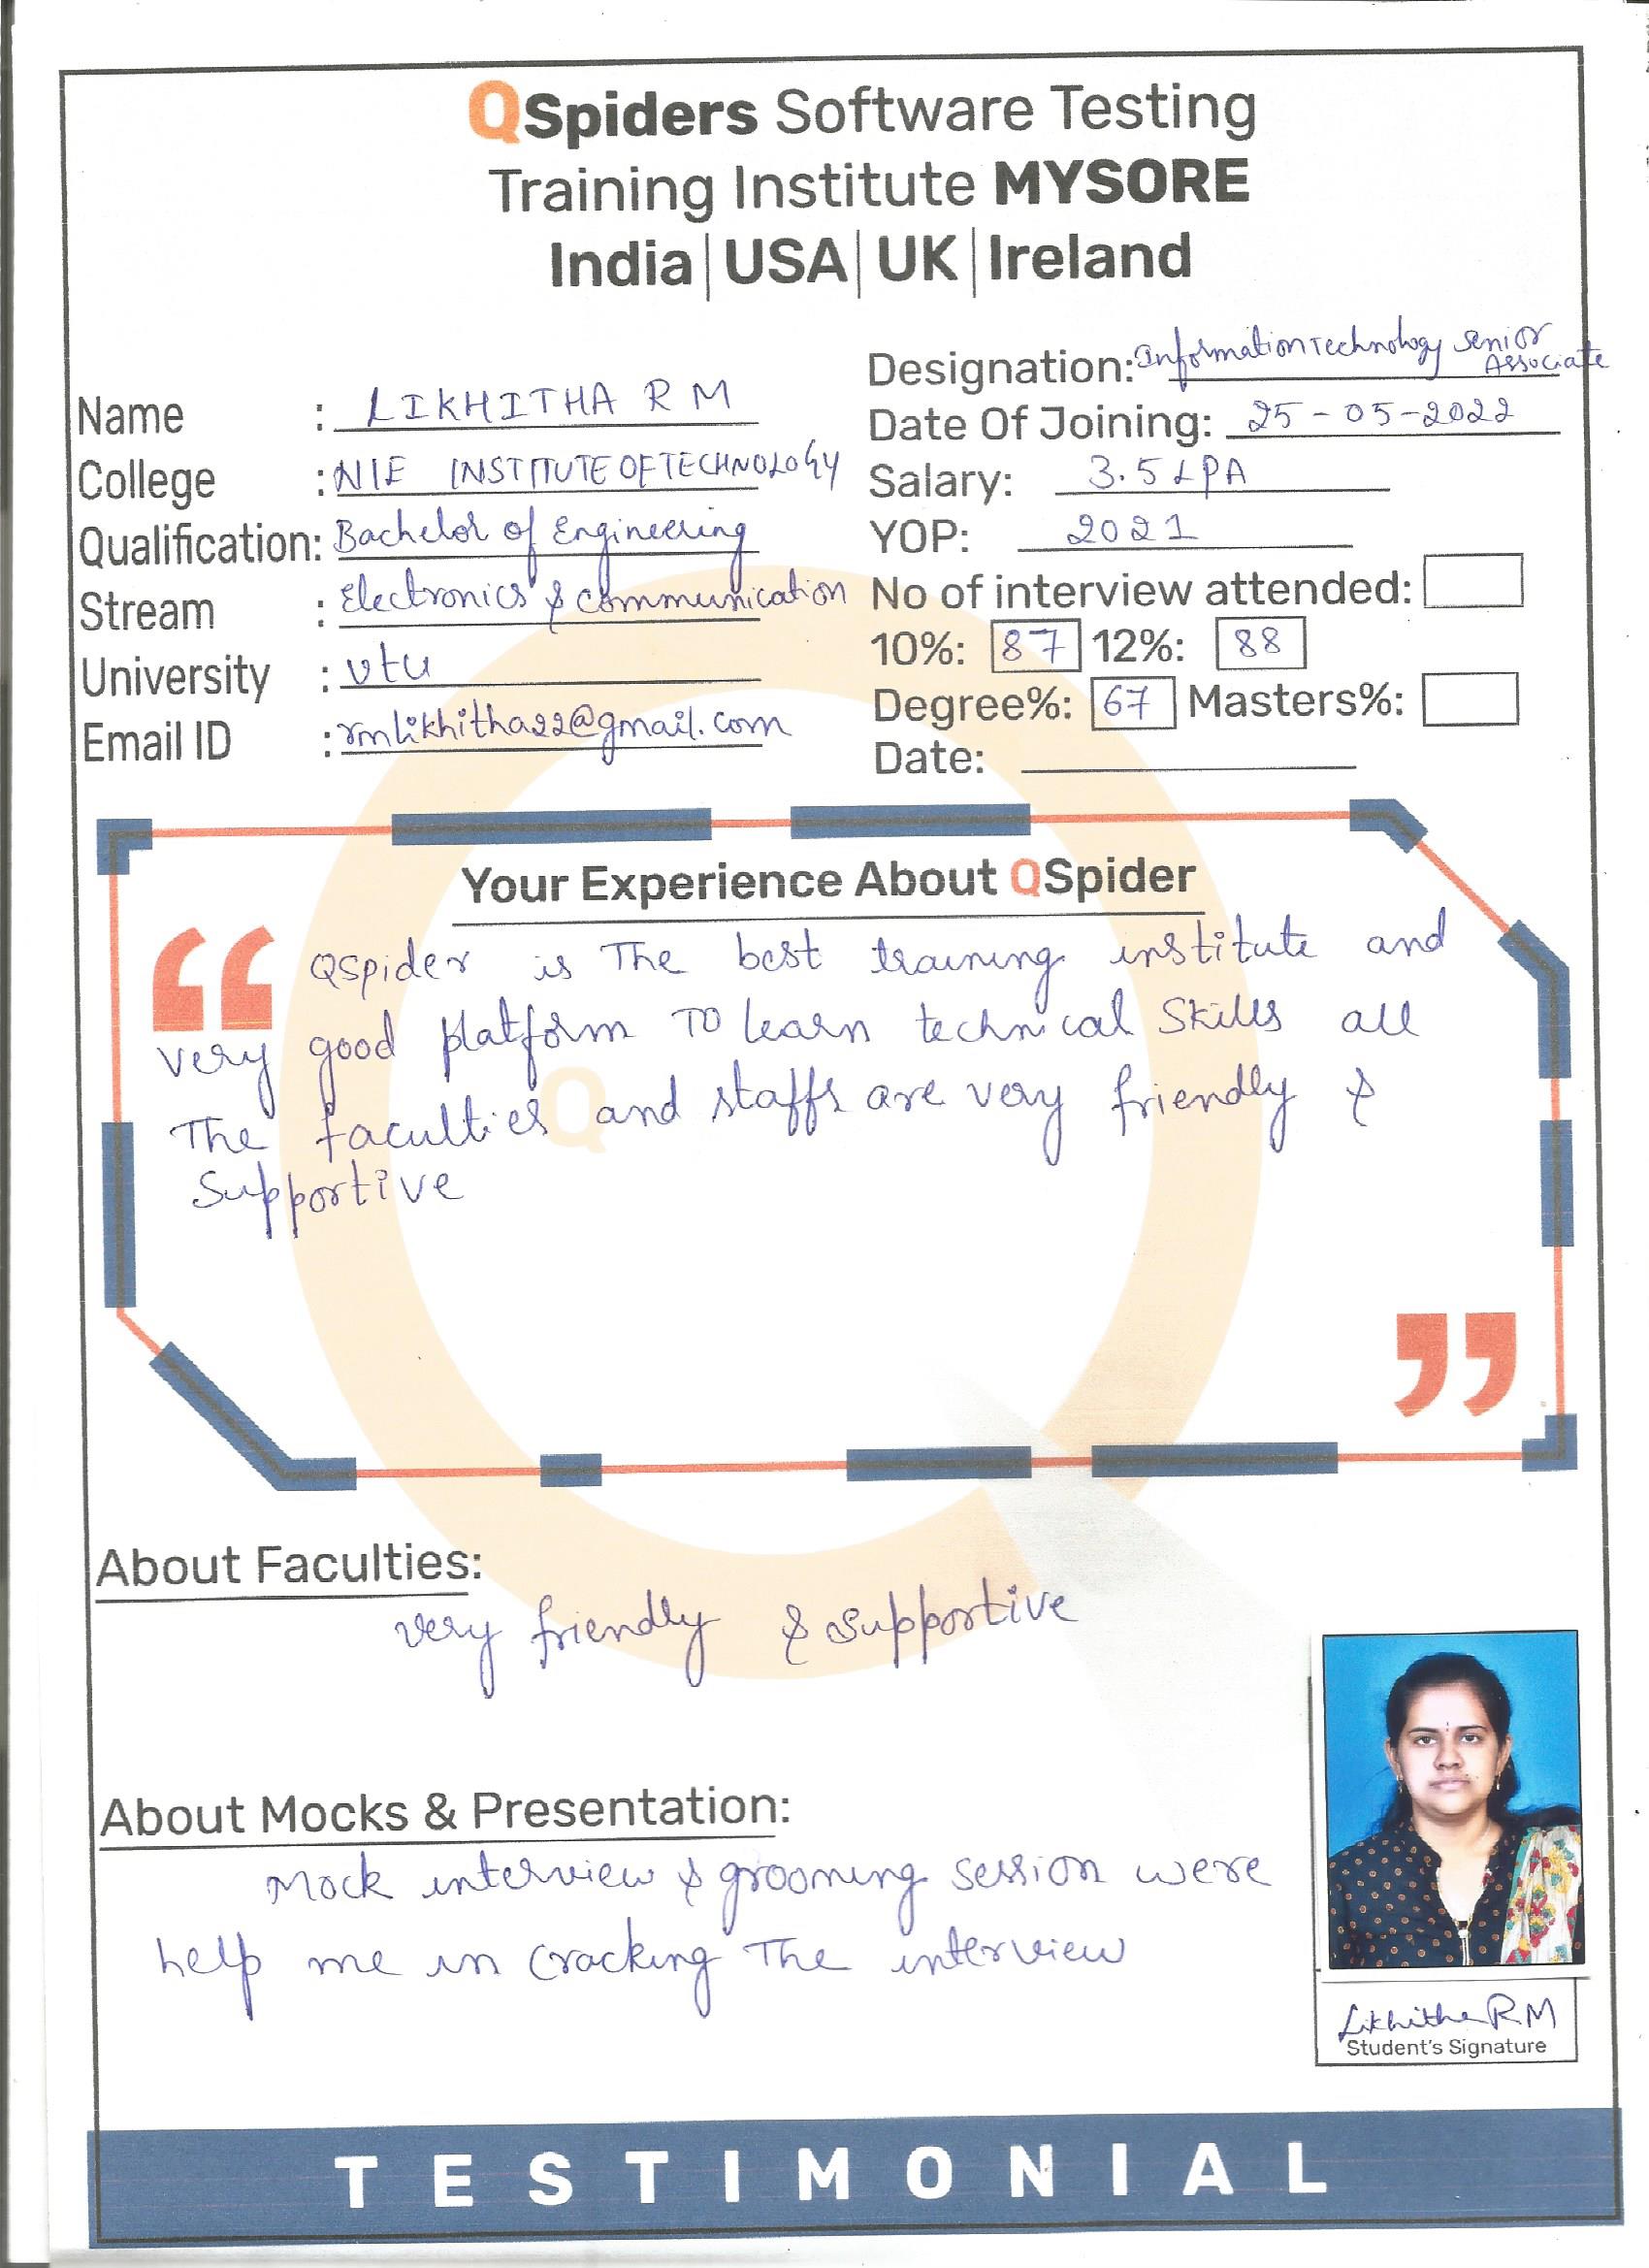 QSpiders Software Testing
Training Institute MYSORE
India | USA | UK | Ireland
Name : LIKHITHA R M
College : NIE INSTITUTE OF TECHNOLOGY
Qualification: Bachelor of Engineering
Stream : Electronics & communication
University : vtu
Email ID : rmlikhitha22@gmail.com
Designation: Information Technology Senior
Associate
Date Of Joining: 25-05-2022
Salary: 3.5 LPA
YOP: 2021
No of interview attended:
10%: 87 12%: 88
Degree%: 67 Masters%:
Date:
Your Experience About QSpider
“ QSpider is The best training institute and
very good platform To learn technical Skills all
The faculties and staffs are very friendly &
Supportive
”
About Faculties:
very friendly & supportive
About Mocks & Presentation:
Mock interview & grooming session were
help me in cracking The interview
Likhitha R M
Student's Signature
TESTIMONIAL